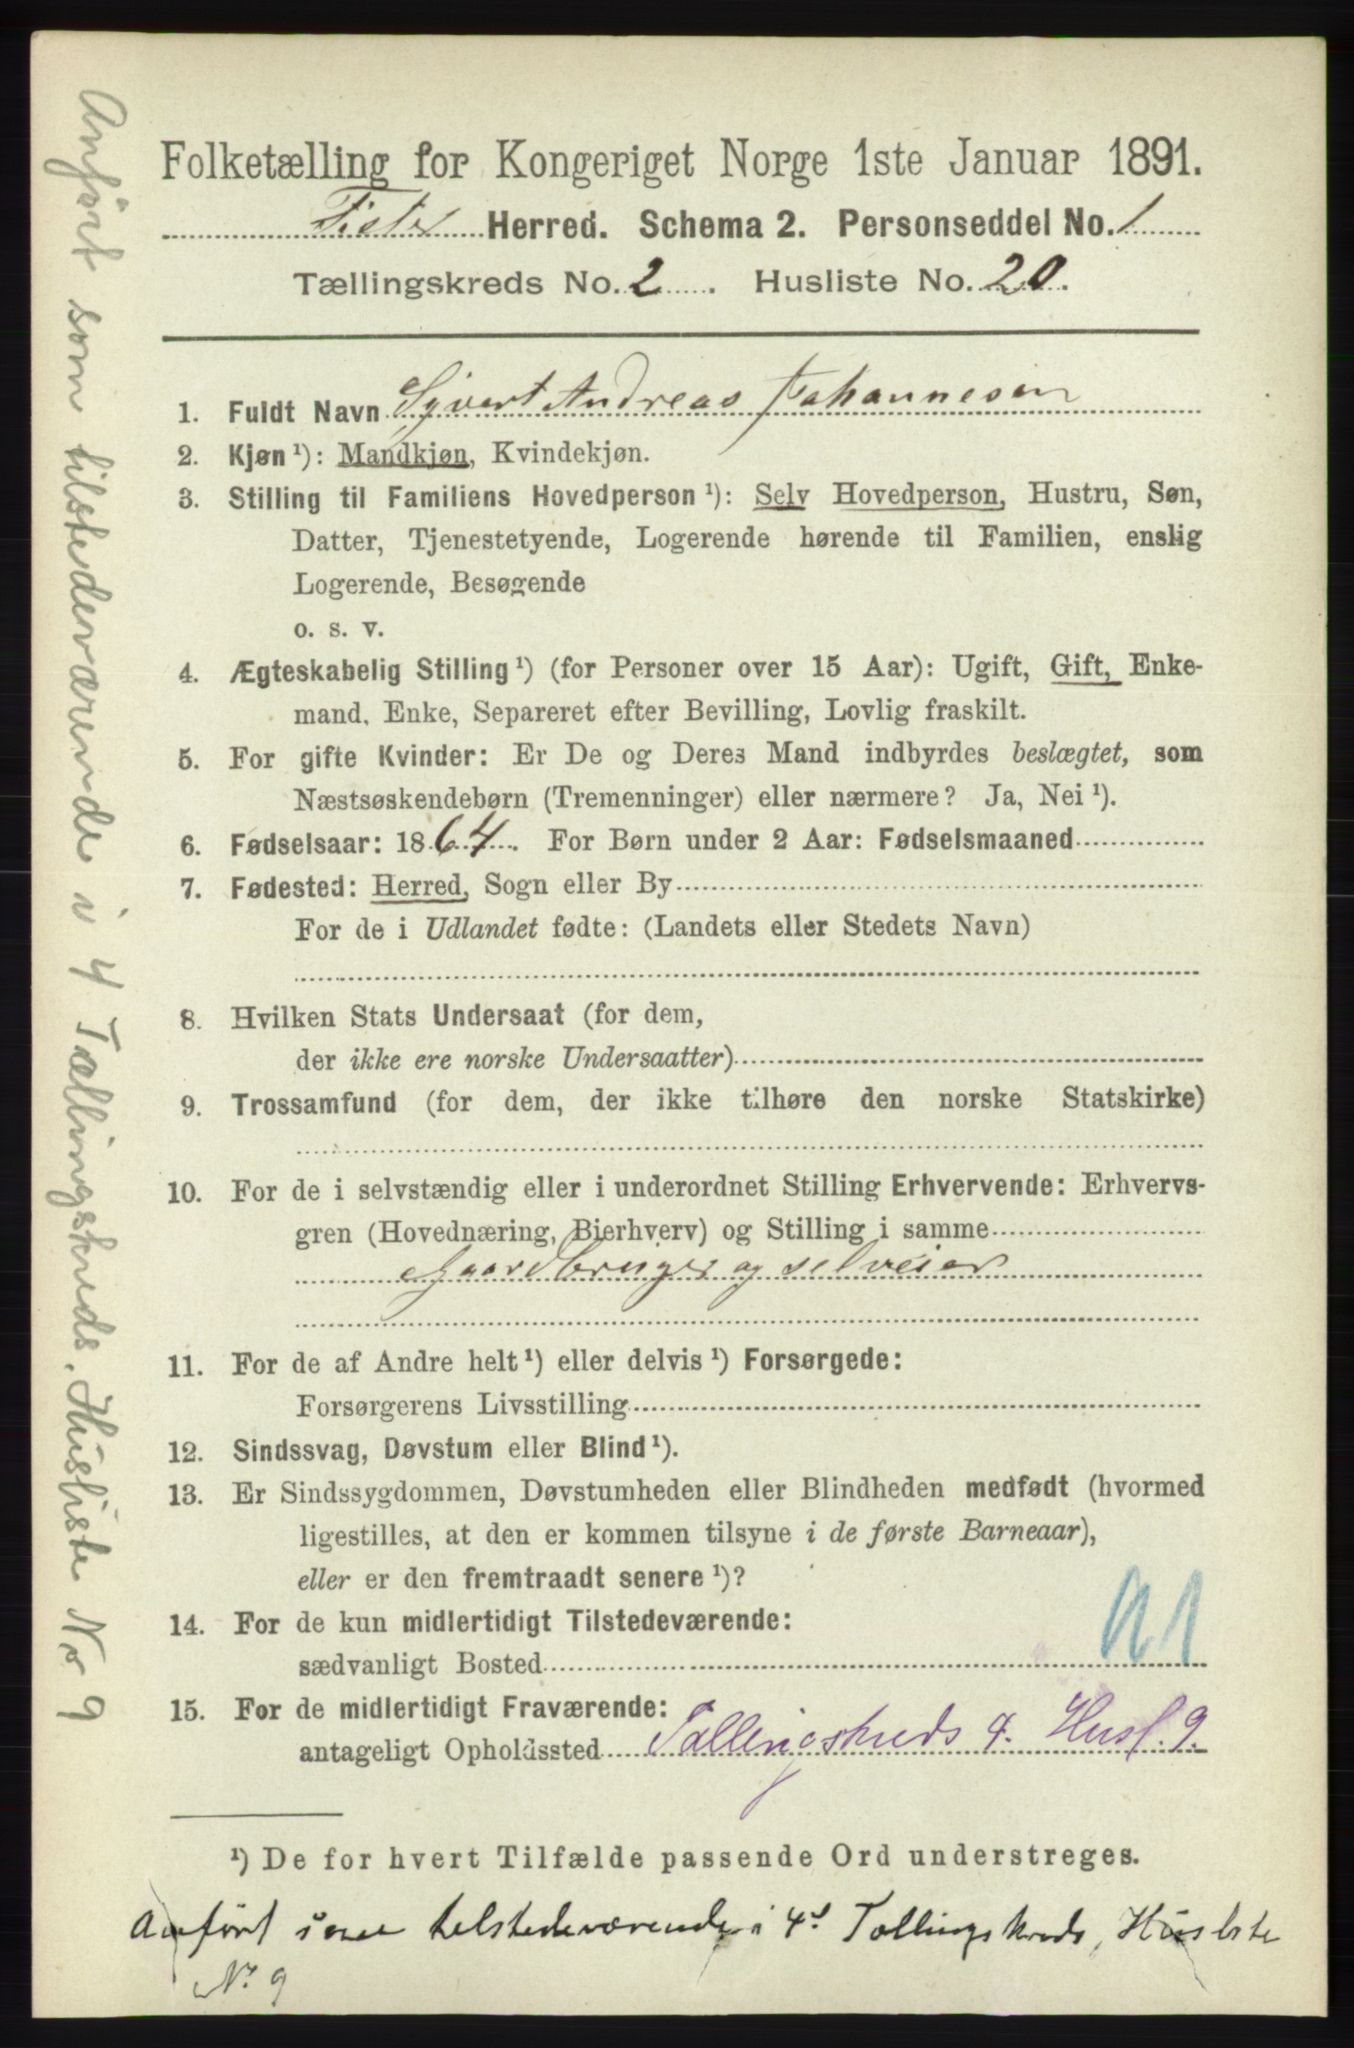 Folketælling for Kongeriget Norge 1ste Januar 1891.
Fister Herred. Schema 2. Personseddel No. 1
Tællingskreds No. 2. Husliste No. 20.
1. Fuldt Navn Syvert Andreas Johannesen
2. Kjøn ¹): Mandkjøn, Kvindekjøn.
3. Stilling til Familiens Hovedperson ¹): Selv Hovedperson, Hustru, Søn,
Datter, Tjenestetyende, Logerende hørende til Familien, enslig
Logerende, Besøgende
o. s. v.
4. Ægteskabelig Stilling ¹) (for Personer over 15 Aar): Ugift, Gift, Enke-
mand, Enke, Separeret efter Bevilling, Lovlig fraskilt.
5. For gifte Kvinder: Er De og Deres Mand indbyrdes beslægtet, som
Næstsøskendebørn (Tremenninger) eller nærmere? Ja, Nei ¹).
6. Fødselsaar: 1864. For Børn under 2 Aar: Fødselsmaaned
7. Fødested: Herred, Sogn eller By
For de i Udlandet fødte: (Landets eller Stedets Navn)
8. Hvilken Stats Undersaat (for dem,
der ikke ere norske Undersaatter)
9. Trossamfund (for dem, der ikke tilhøre den norske Statskirke)
10. For de i selvstændig eller i underordnet Stilling Erhvervende: Erhvervs-
gren (Hovednæring, Bierhverv) og Stilling i samme
Gaardbruger og selveier
11. For de af Andre helt ¹) eller delvis ¹) Forsørgede:
Forsørgerens Livsstilling
12. Sindssvag, Døvstum eller Blind ¹).
13. Er Sindssygdommen, Døvstumheden eller Blindheden medfødt (hvormed
ligestilles, at den er kommen tilsyne i de første Barneaar),
eller er den fremtraadt senere ¹)?
14. For de kun midlertidigt Tilstedeværende:
sædvanligt Bosted
15. For de midlertidigt Fraværende:
antageligt Opholdssted Tællingskreds 4. Husl. 9.
¹) De for hvert Tilfælde passende Ord understreges.
Anført som tilstedeværende i 4d Tællingskreds, Husliste
No 9
Anført som tilstedeværende i 4 Tællingskreds. Husliste No 9